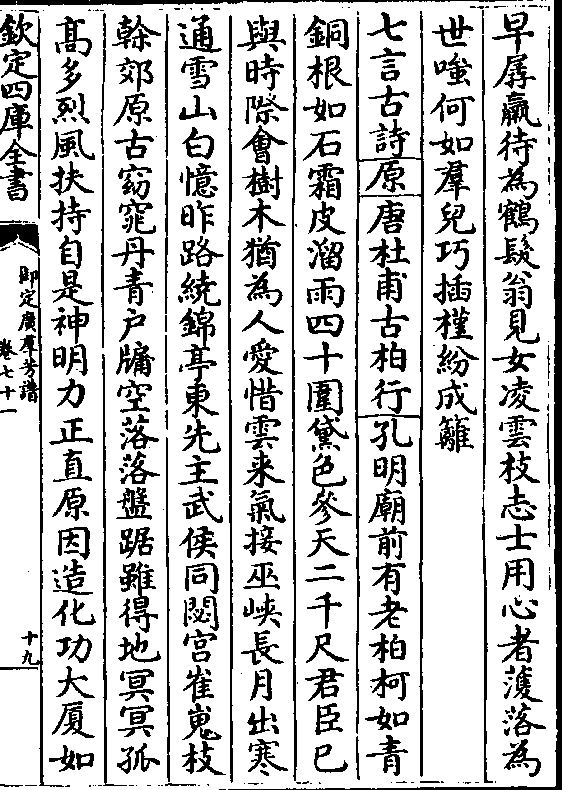 早孱羸待為鶴髮翁見女凌雲枝志士用心者蒦落為
世嗤何如羣兒巧插槿紛成籬
七言古詩原唐杜甫古柏行孔明廟前有老柏柯如青
銅根如石霜皮溜雨四十圍黛色參天二千尺君臣已
與時際會樹木猶為人愛惜雲來氣接巫峽長月出寒
通雪山白憶昨路繞錦亭東先主武侯同閟宫崔嵬枝
榦郊原古窈窕丹青户牖空落落盤踞雖得地冥冥孤
髙多烈風扶持自是神明力正直原因造化功大厦如
欽定四庫全書
御定廣羣芳譜
卷七十一
十九